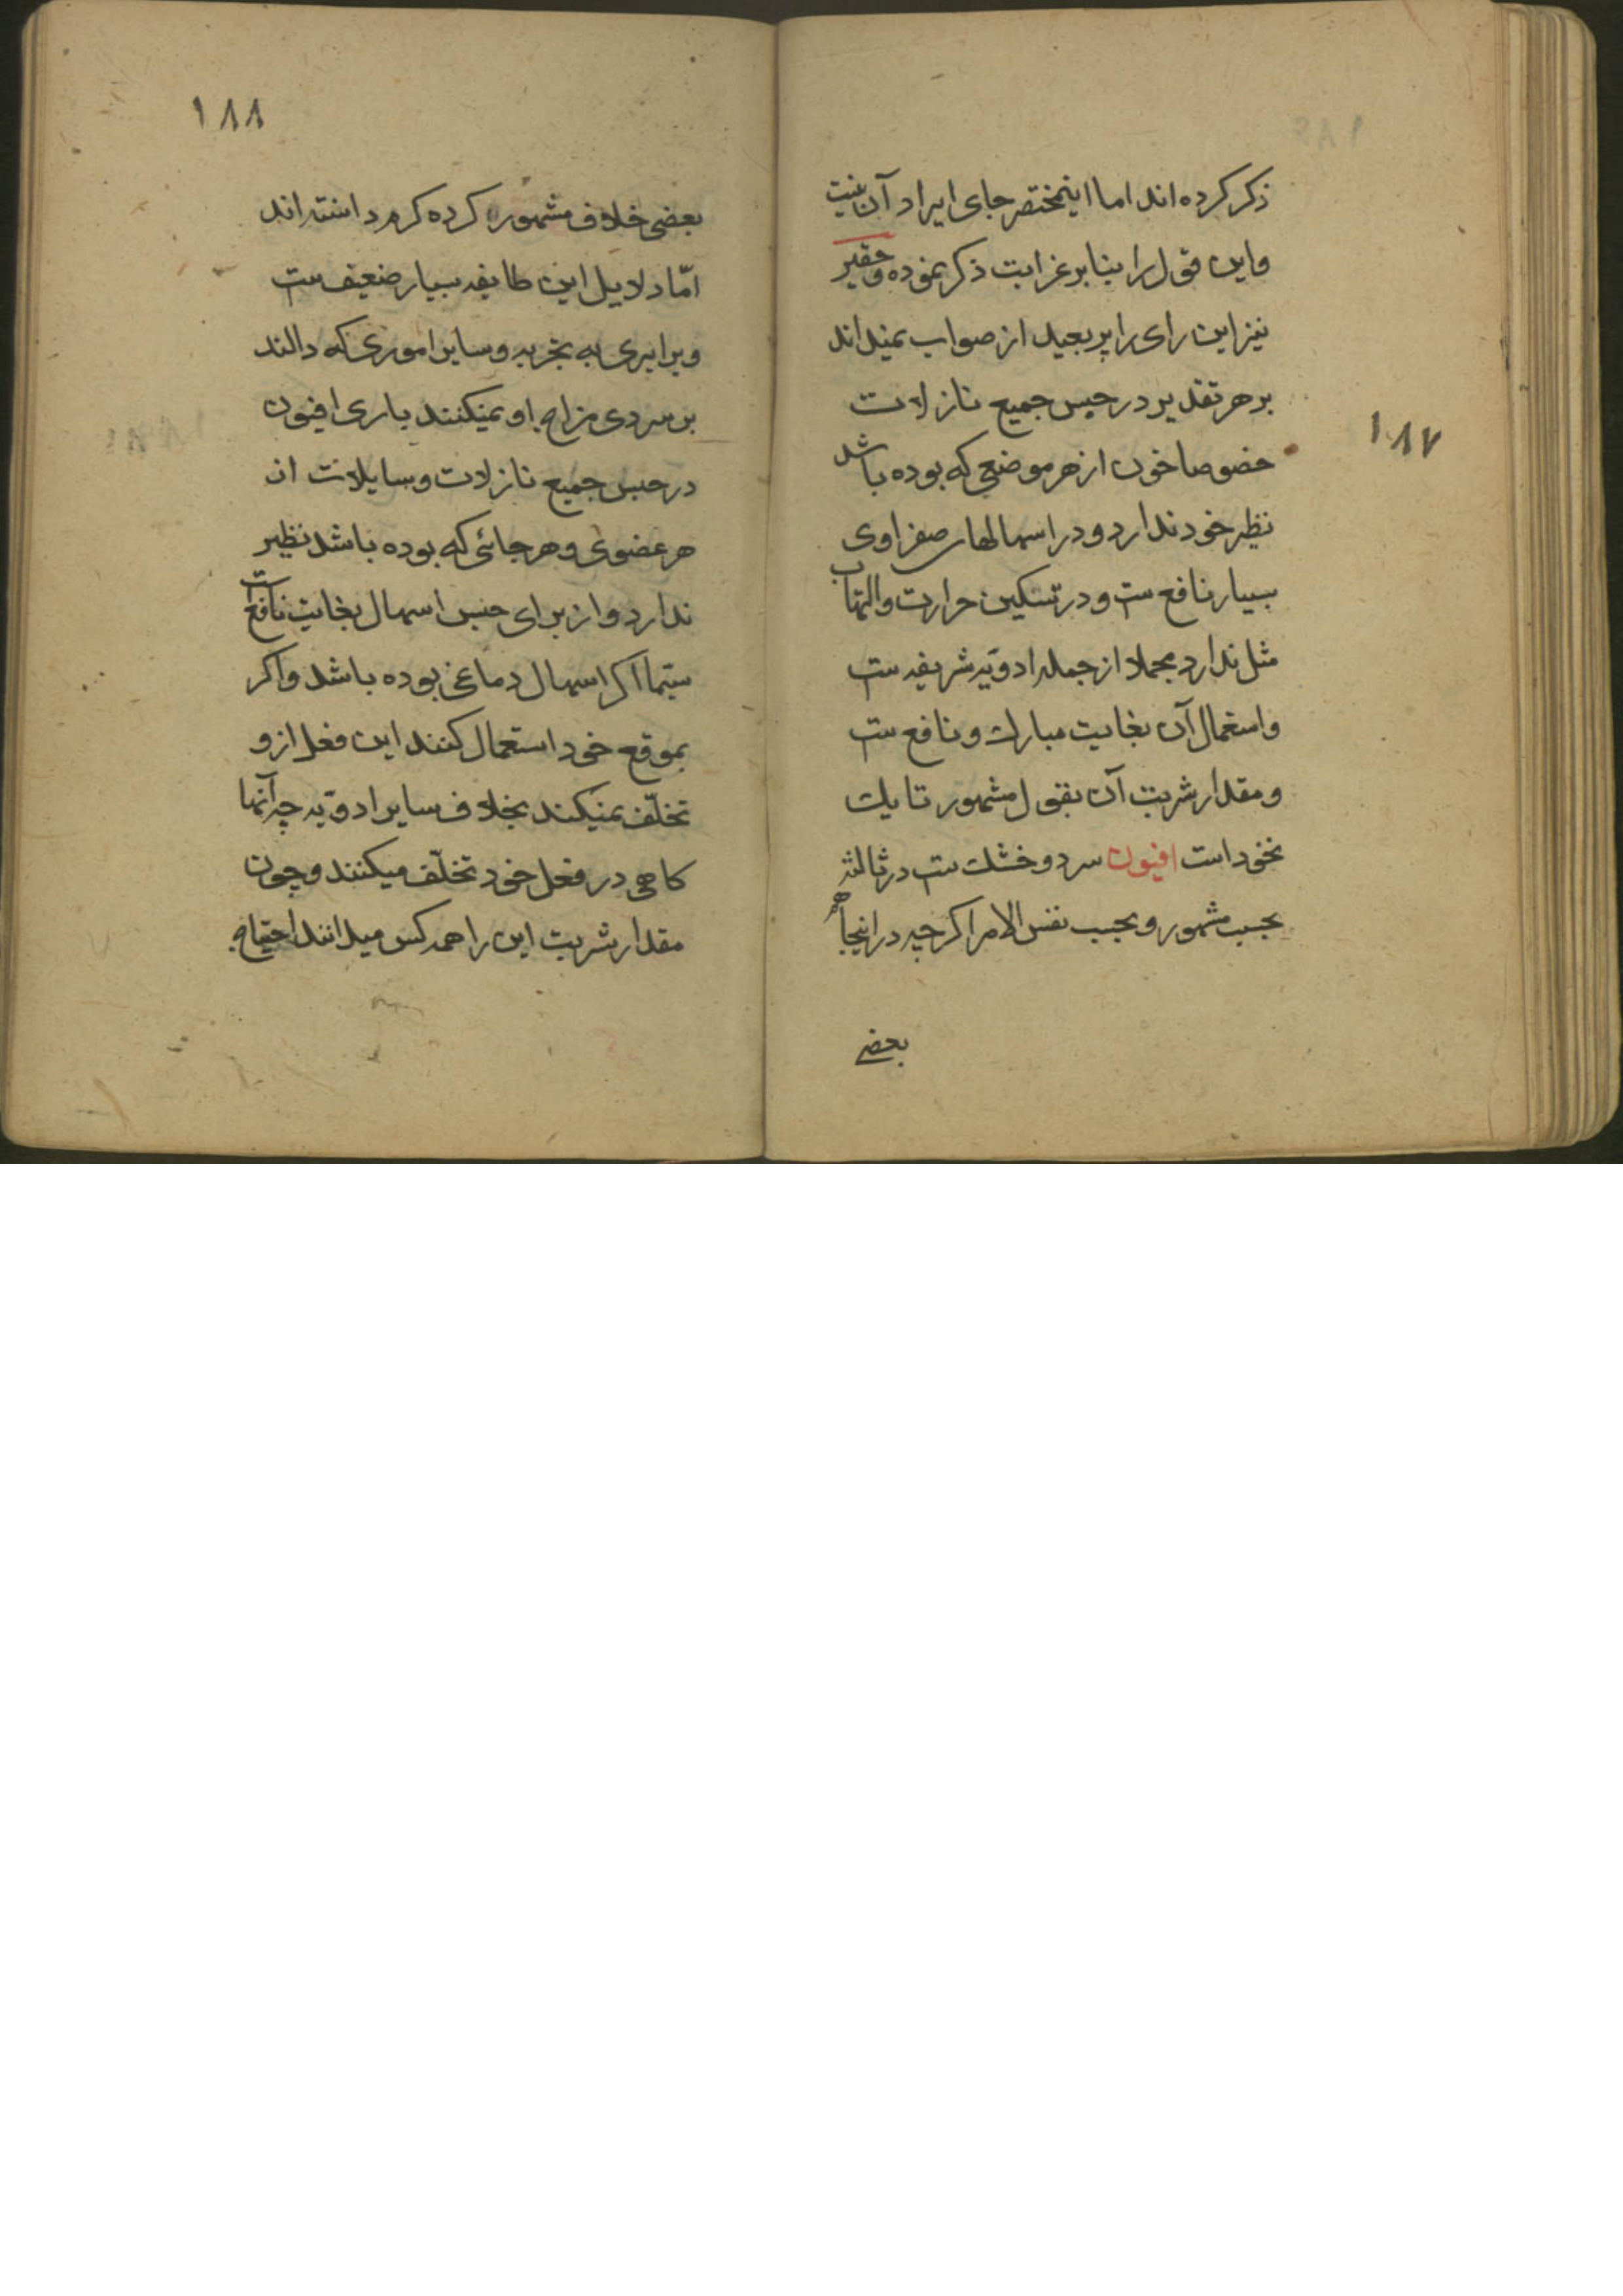 ذکر کرده اند اما اینمختصر جای ایراد آن نیست
و این قول را بنا بر غرابت ذکر نموده و حقیر
نیز این رای را پر بعید از صواب نمیداند
بر هر تقدیر در حبس جمیع نازلات
خصوصا خون از هر موضعی که بوده باشد
نظیر خود ندارد و در اسهالهای صفراوی
بسیار نافع ست و در تسکین حرارت و التهاب
مثل ندارد مجملا از جمله ادویه شریفه ست
و استعمال آن بغایت مبارک و نافع ست
و مقدار شربت آن بقول مشهور تا یک
نخود است افیون سرد و خشک ست در ثالثه
بحسب مشهور و بحسب نفس الامر اکرچه در اینجا هم
بعضی
۱۸۷
۱۸۸
بعضی خلاف مشهور کرده کرم داشته اند
امّا دلایل این طایفه بسیار ضعیف ست
و برابری به تجربه و سایر اموری که دالند
بر سردی مزاج او نمیکنند باری افیون
در حبس جمیع نازلات و سایلات از
هر عضوی و هر جائی که بوده باشد نظیر
ندارد و از برای حبس اسهال بغایت نافع است
سیّما اکر اسهال دماغی بوده باشد و اکر
بموقع خود استعمال کنند این فعل ازو
تخلّف نمیکند بخلاف سایر ادویه چه آنها
کاهی در فعل خود تخلّف میکنند و چون
مقدار شربت این را همه کس میدانند احتیاج